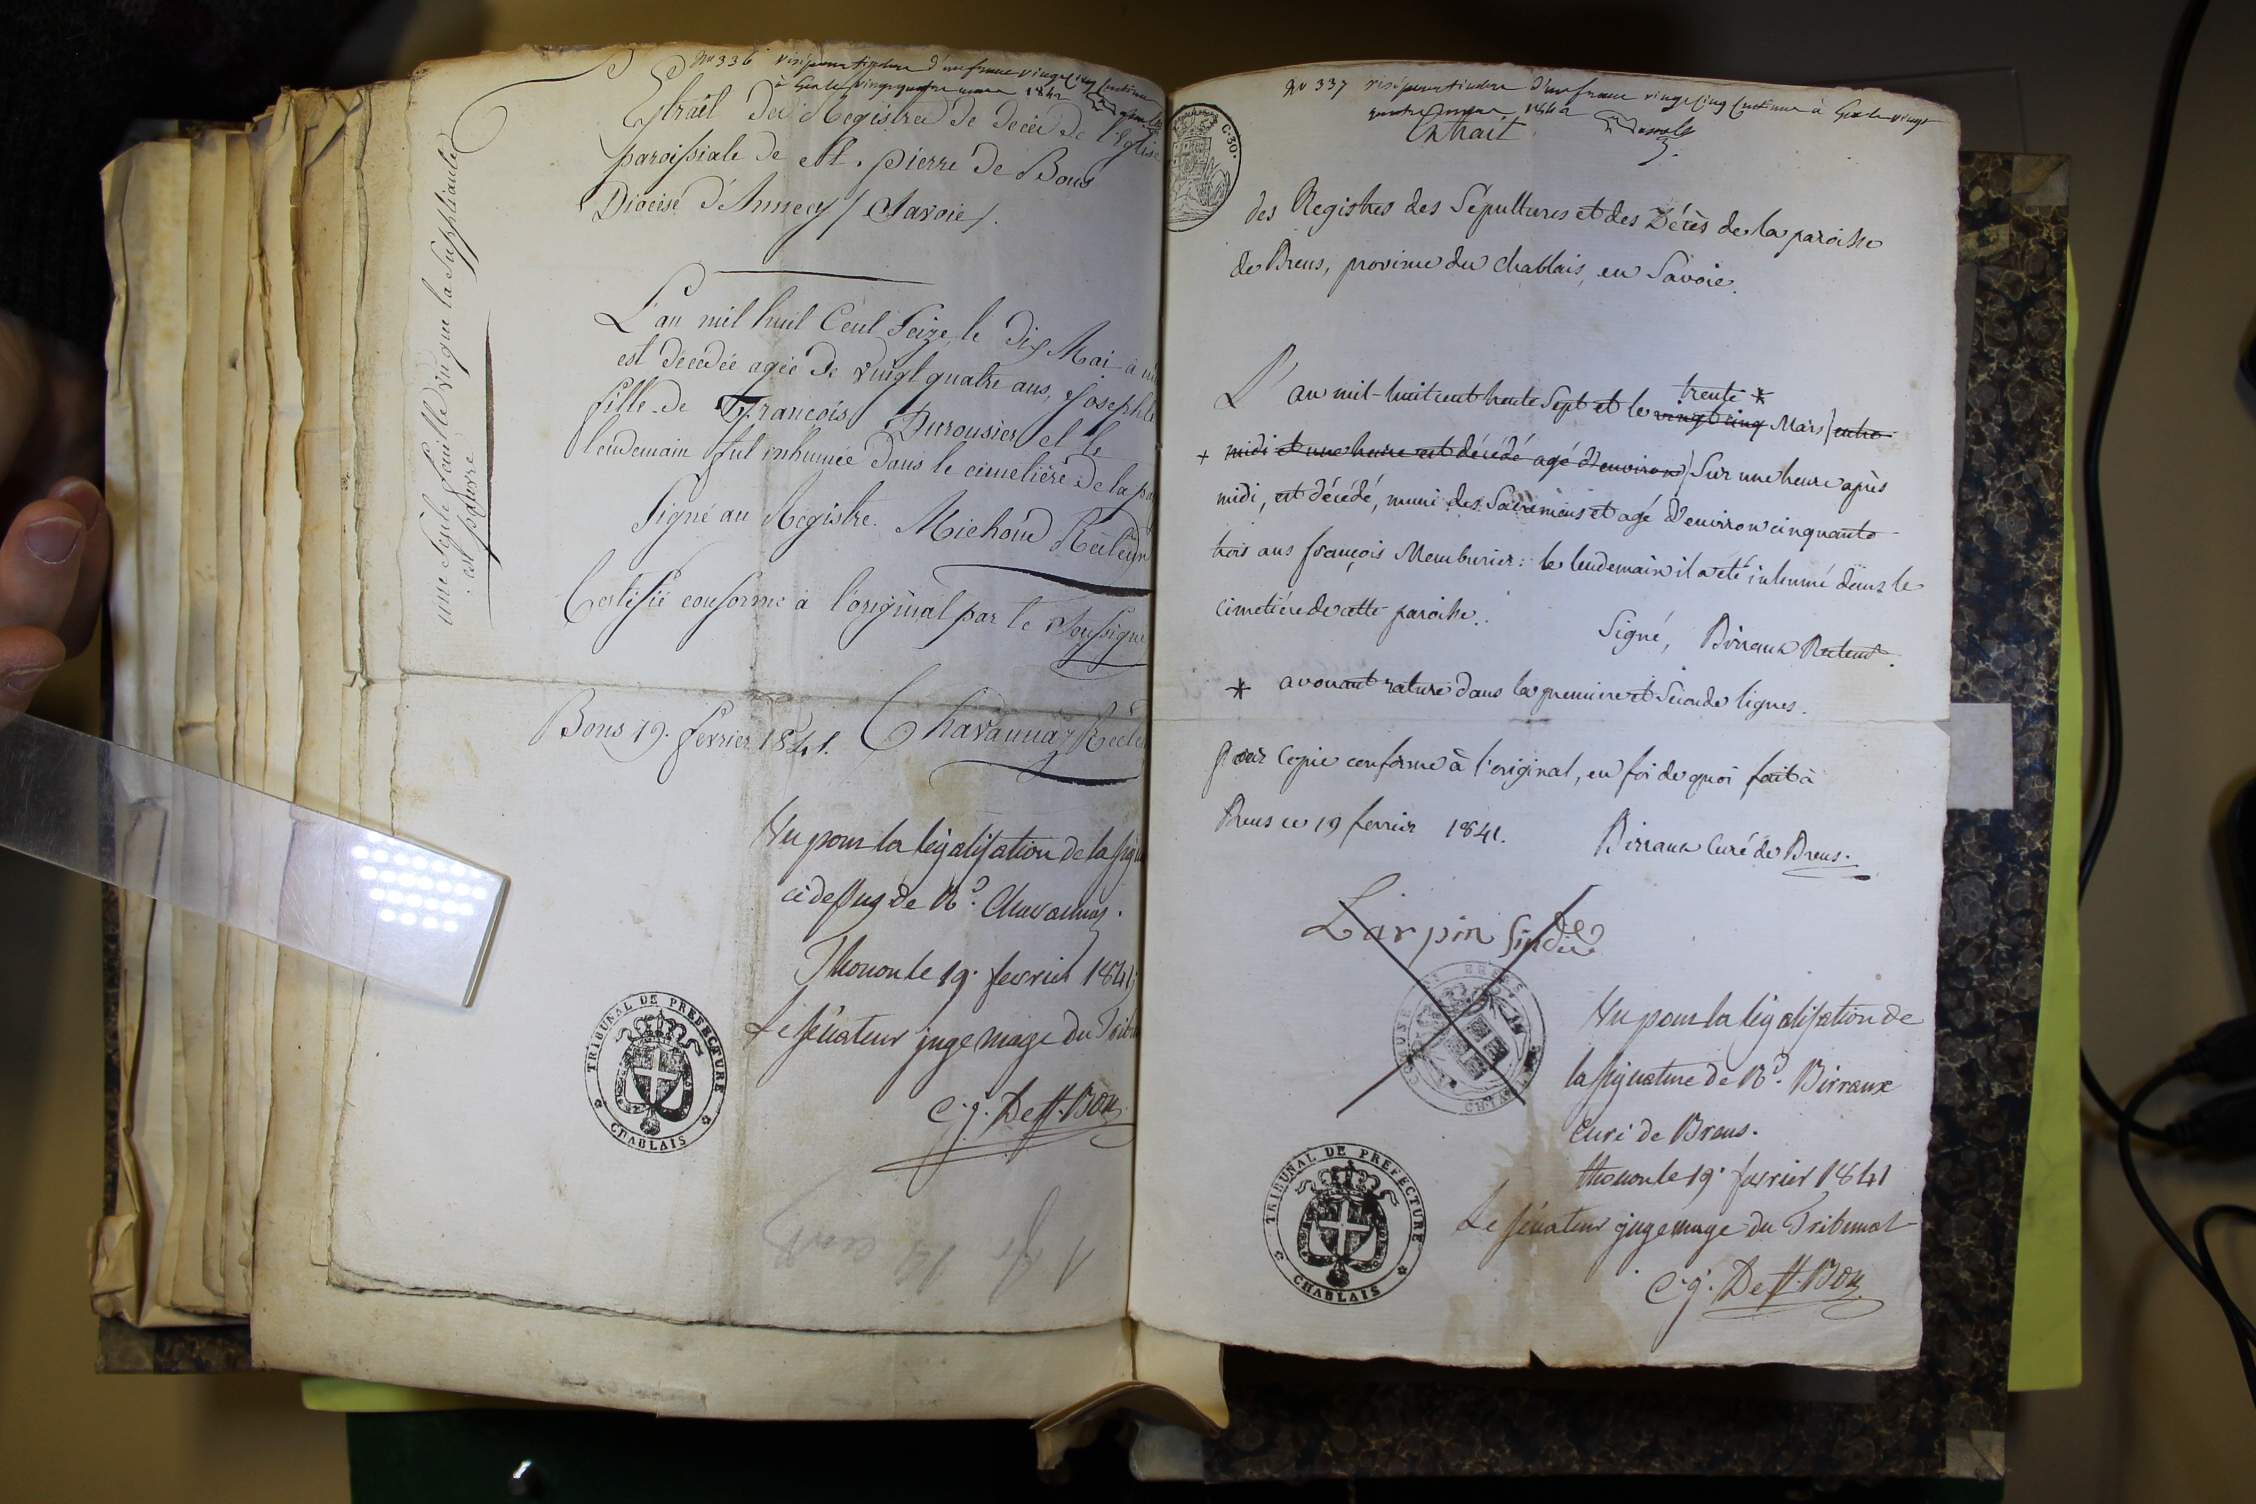 No 336 visé pour timbre d'un franc vingt cinq centimes
à Gex le vingt quatre mars 1842
Extrait des Registres de décès de l'Eglise
paroissiale de St. Pierre de Bons
Diocèse d'Annecy / Savoie /.
une seule feuille vu que la suppliante
est pauvre
L'an mil huit Cent Seize, le dix Mai à
est décédée agée de vingt quatre ans, Josephte
fille de François Durousier et le
lendemain fut inhumée dans le cimetière de la
Signé au Registre. Michoud Recteur
Certifié conforme à l'original par le Soussigné
Bons 19. fevrier 1841. Chavannaz Recteur
Vu pour la légalisation de la
ci dessus de Rd. Chavannaz.
Thonon le 19. fevrier 1841
Le sénateur juge mage du
TRIBUNAL DE PREFECTURE
CHABLAIS
No 337 visé pour timbre d'un franc vingt cinq centimes à Gex le vingt
quatre mars 1842
C.30.
Extrait
des Registres des Sépultures et des Décès de la paroisse
de Brens, province du Chablais, en Savoie.
trente *
L'an mil-huit cent trente Sept et le vingt cinq Mars / entre
+ midi et une heure est décédé agé d'environ / Sur une heure après
midi, est décédé, muni des Sacremens et agé d'environ cinquante
trois ans françois Memburier : le lendemain il a été inhumé dans le
cimetière de cette paroisse.
Signé, Birraux Recteur.
* avouant rature dans la premiere et Séconde lignes.
Pour Copie conforme à l'original, en foi de quoi fait à
Brens ce 19 fevrier 1841.
Birraux Curé de Brens.
Larpin Sindic
Vu pour la légalisation de
la signature de Rd. Birraux
Curé de Brens.
Thonon le 19. fevrier 1841
Le sénateur juge mage du Tribunal
TRIBUNAL DE PREFECTURE
CHABLAIS